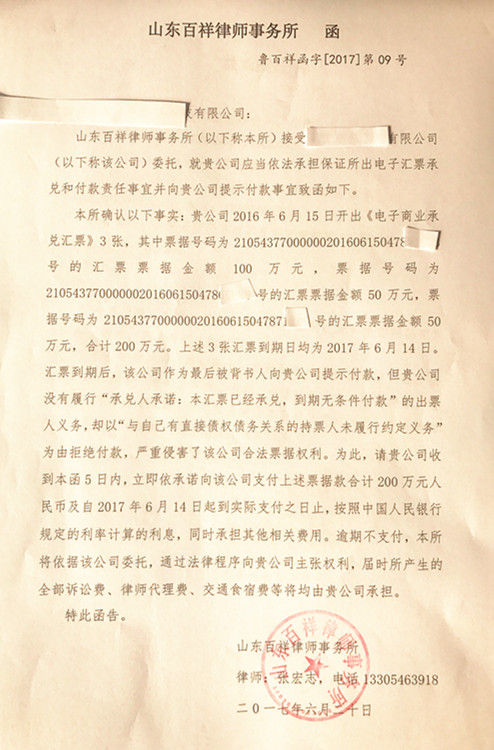 山东百祥律师事务所 函
鲁百祥函字[2017]第 09 号
有限公司：
山东百祥律师事务所（以下称本所）接受 有限公司
（以下称该公司）委托，就贵公司应当依法承担保证所出电子汇票承
兑和付款责任事宜并向贵公司提示付款事宜致函如下。
本所确认以下事实：贵公司 2016 年 6 月 15 日开出《电子商业承
兑汇票》3 张，其中票据号码为 210543770000002016061504 78
号的汇票票据金额 100 万元，票据号码为
21054377000000201606150478 号的汇票票据金额 50 万元，票
据号码为 210543770000002016061504787 号的汇票票据金额 50
万元，合计 200 万元。上述 3 张汇票到期日均为 2017 年 6 月 14 日。
汇票到期后，该公司作为最后被背书人向贵公司提示付款，但贵公司
没有履行“承兑人承诺：本汇票已经承兑，到期无条件付款”的出票
人义务，却以“与自己有直接债权债务关系的持票人未履行约定义务”
为由拒绝付款，严重侵害了该公司合法票据权利。为此，请贵公司收
到本函 5 日内，立即依承诺向该公司支付上述票据款合计 200 万元人
民币及自 2017 年 6 月 14 日起到实际支付之日止，按照中国人民银行
规定的利率计算的利息，同时承担其他相关费用。逾期不支付，本所
将依据该公司委托，通过法律程序向贵公司主张权利，届时所产生的
全部诉讼费、律师代理费、交通食宿费等将均由贵公司承担。
特此函告。
山东百祥律师事务所
律师：张宏志，电话 13305463918
二〇一七年六月二十日
山东百祥律师事务所